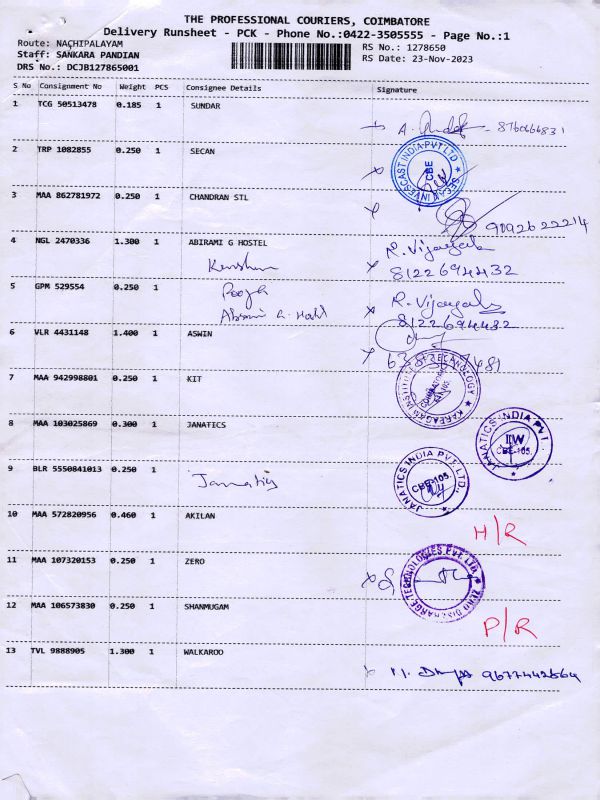 THE PROFESSIONAL COURIERS, COIMBATORE
Delivery Runsheet - PCK - Phone No.:0422-3505555 - Page No.:1
Route: NACHIPALAYAM
RS No.: 1278650
Staff: SANKARA PANDIAN
RS Date: 23-Nov-2023
DRS No.: DCJB127865001
S No Consignment No Weight PCS Consignee Details Signature
1 TCG 50513478 0.185 1 SUNDAR
2 TRP 1082855 0.250 1 SECAN
SECAN INVESCAST INDIA PVT LTD CBE
3 MAA 862781972 0.250 1 CHANDRAN STL
9092622214
4 NGL 2470336 1.300 1 ABIRAMI G HOSTEL
R. Vijayal
8122694432
5 GPM 529554 0.250 1
Pooja
R. Vijayal
8122694432
6 VLR 4431148 1.400 1 ASWIN
7 MAA 942998801 0.250 1 KIT
KARPAGAM INSTITUTE OF TECHNOLOGY
8 MAA 103025869 0.300 1 JANATICS
JANATICS INDIA PVT. IIW CBE-105.
9 BLR 5550841013 0.250 1
Janatics
JANATICS INDIA PVT. LTD., CBE-105
10 MAA 572820956 0.460 1 AKILAN
H/R
11 MAA 107320153 0.250 1 ZERO
ZERO DISCHARGE TECHNOLOGIES PVT. LTD
12 MAA 106573830 0.250 1 SHANMUGAM
P/R
13 TVL 9888905 1.300 1 WALKAROO
9677442564